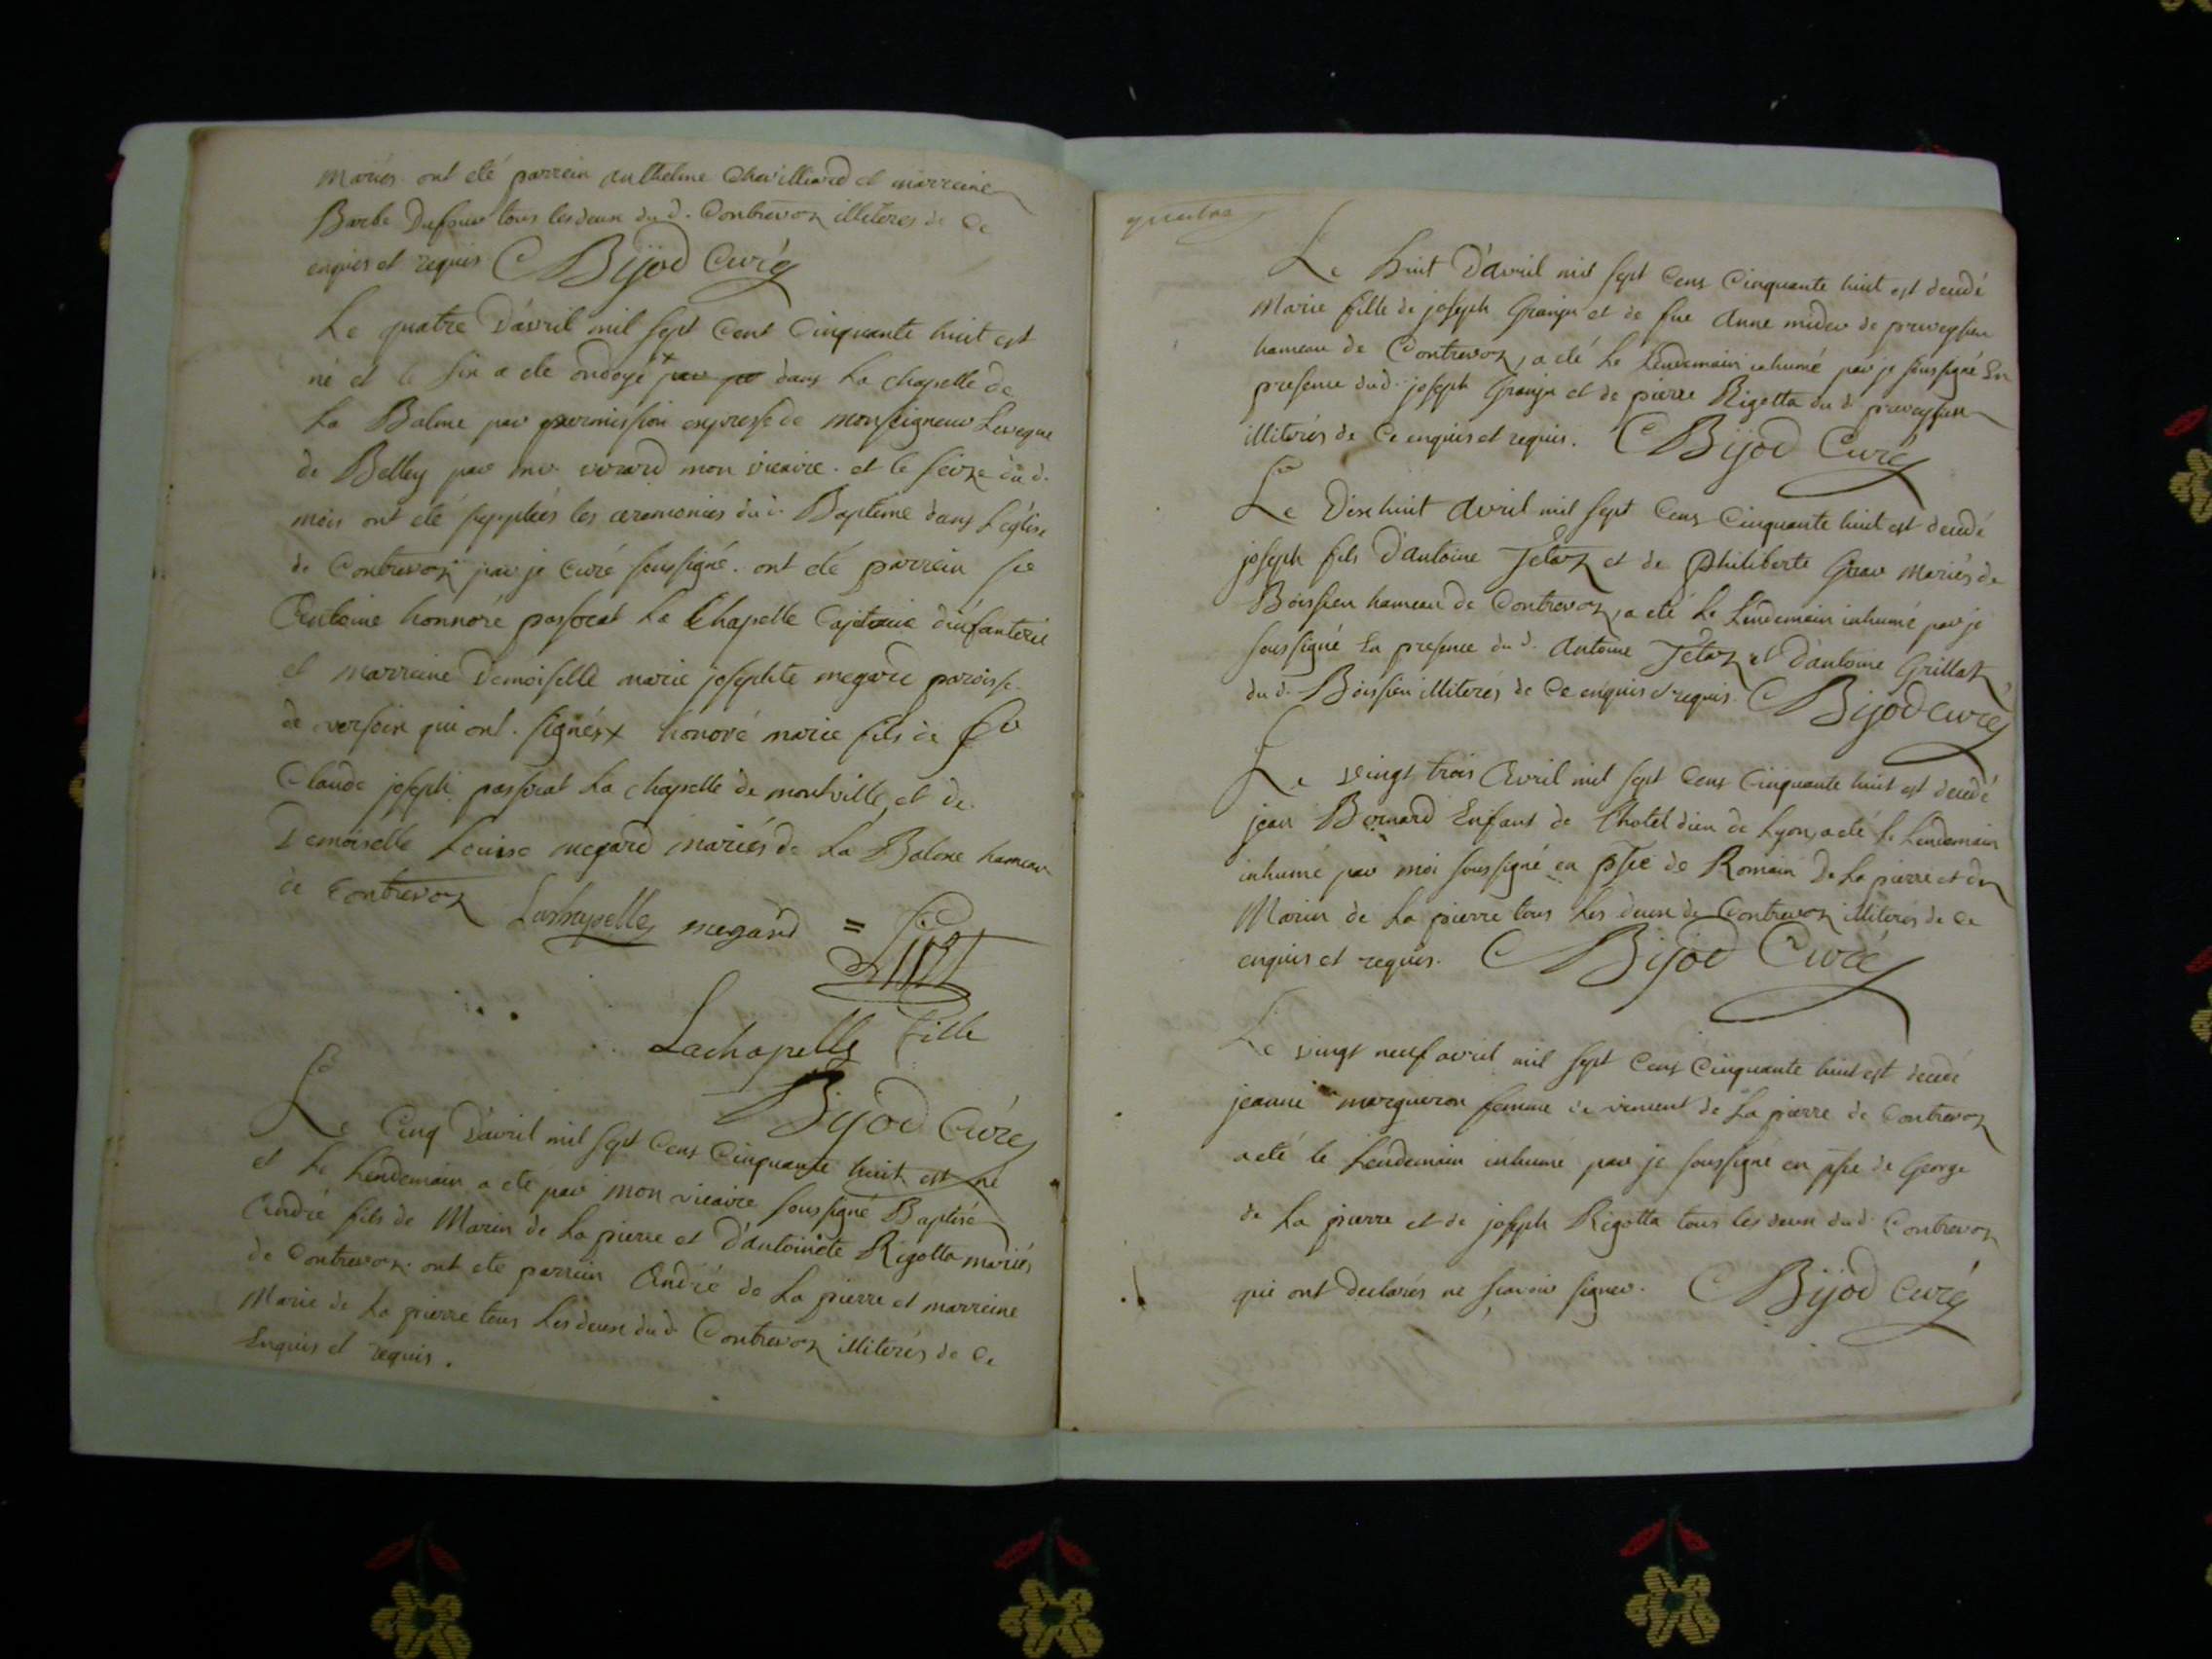 mariés ont eté parrein anthelme Chevilliard et marreine
Barbe Dufour tous les deux du d. Contrevoz illiteres de Ce
enquis et requis Bijod Curé
Le quatre D'avril mil sept Cent Cinquante huit est
né et le six a ete ondoyé x dans La chapelle de
La Balme par permission expresse de monseigneur Leveque
de Belley par mr. mon vicaire. et le seize du d.
mois ont eté supplées les ceremonies du d. Baptême dans L'église
de Contrevoz par je Curé soussigné. ont eté parrein
Antoine honnoré passerat La Chapelle Capitaine d'infanterie
et marreine Demoiselle marie josephte megard paroisse
de versoin qui ont signés x honoré marie fils de
Claude joseph passerat La chapelle de montville et de
Demoiselle Louise megard mariés de La Balme hameau
de Contrevoz Lachapelle megard =
Lachapelle fille
Bijod Curé
Le Cinq D'avril mil sept Cens Cinquante huit est né
et Le Lendemain a eté par mon vicaire soussigné Baptisé
André fils de Marin de La pierre et D'antoinete Rigotta mariés
de Contrevoz. ont eté parrein André de La pierre et marreine
Marie de La pierre tous Les deux du d. Contrevoz illiterés de Ce
Enquis et requis.
quatre
Le huit D'avril mil sept Cens Cinquante huit est decedé
Marie fille de joseph Granju et de fue Anne de preveyssieu
hameau de Contrevoz, a eté Le Lendemain inhumé par je soussigné En
presence du d. joseph Granju et de pierre Rigotta du d. preveyssieu
illiterés de Ce enquis et requis. Bijod Curé
Le Dixhuit Avril mil sept Cens Cinquante huit est decedé
joseph fils D'antoine Jetaz et de Philiberte mariés de
Boissieu hameau de Contrevoz, a eté Le Lendemain inhumé par je
soussigné En presence du d. Antoine Jetaz et D'antoine Grillat
du d. Boissieu illiterés de Ce enquis et requis. Bijod Curé
Le vingt trois Avril mil sept Cens Cinquante huit est decedé
jean Bernard Enfant de l'hotel dieu de Lyon, a eté Le Lendemain
inhumé par moi soussigné en psce de Romain De La pierre et de
Marin de La pierre tous Les deux de Contrevoz illiterés de Ce
enquis et requis. Bijod Curé
Le vingt neuf avril mil sept Cens Cinquante huit est decedé
jeanne margueron femme de vincent de La pierre de Contrevoz
a eté le Lendemain inhumé par je soussigné en psce de George
de La pierre et de joseph Rigotta tous les deux du d. Contrevoz
qui ont declarés ne scavoir signer. Bijod Curé